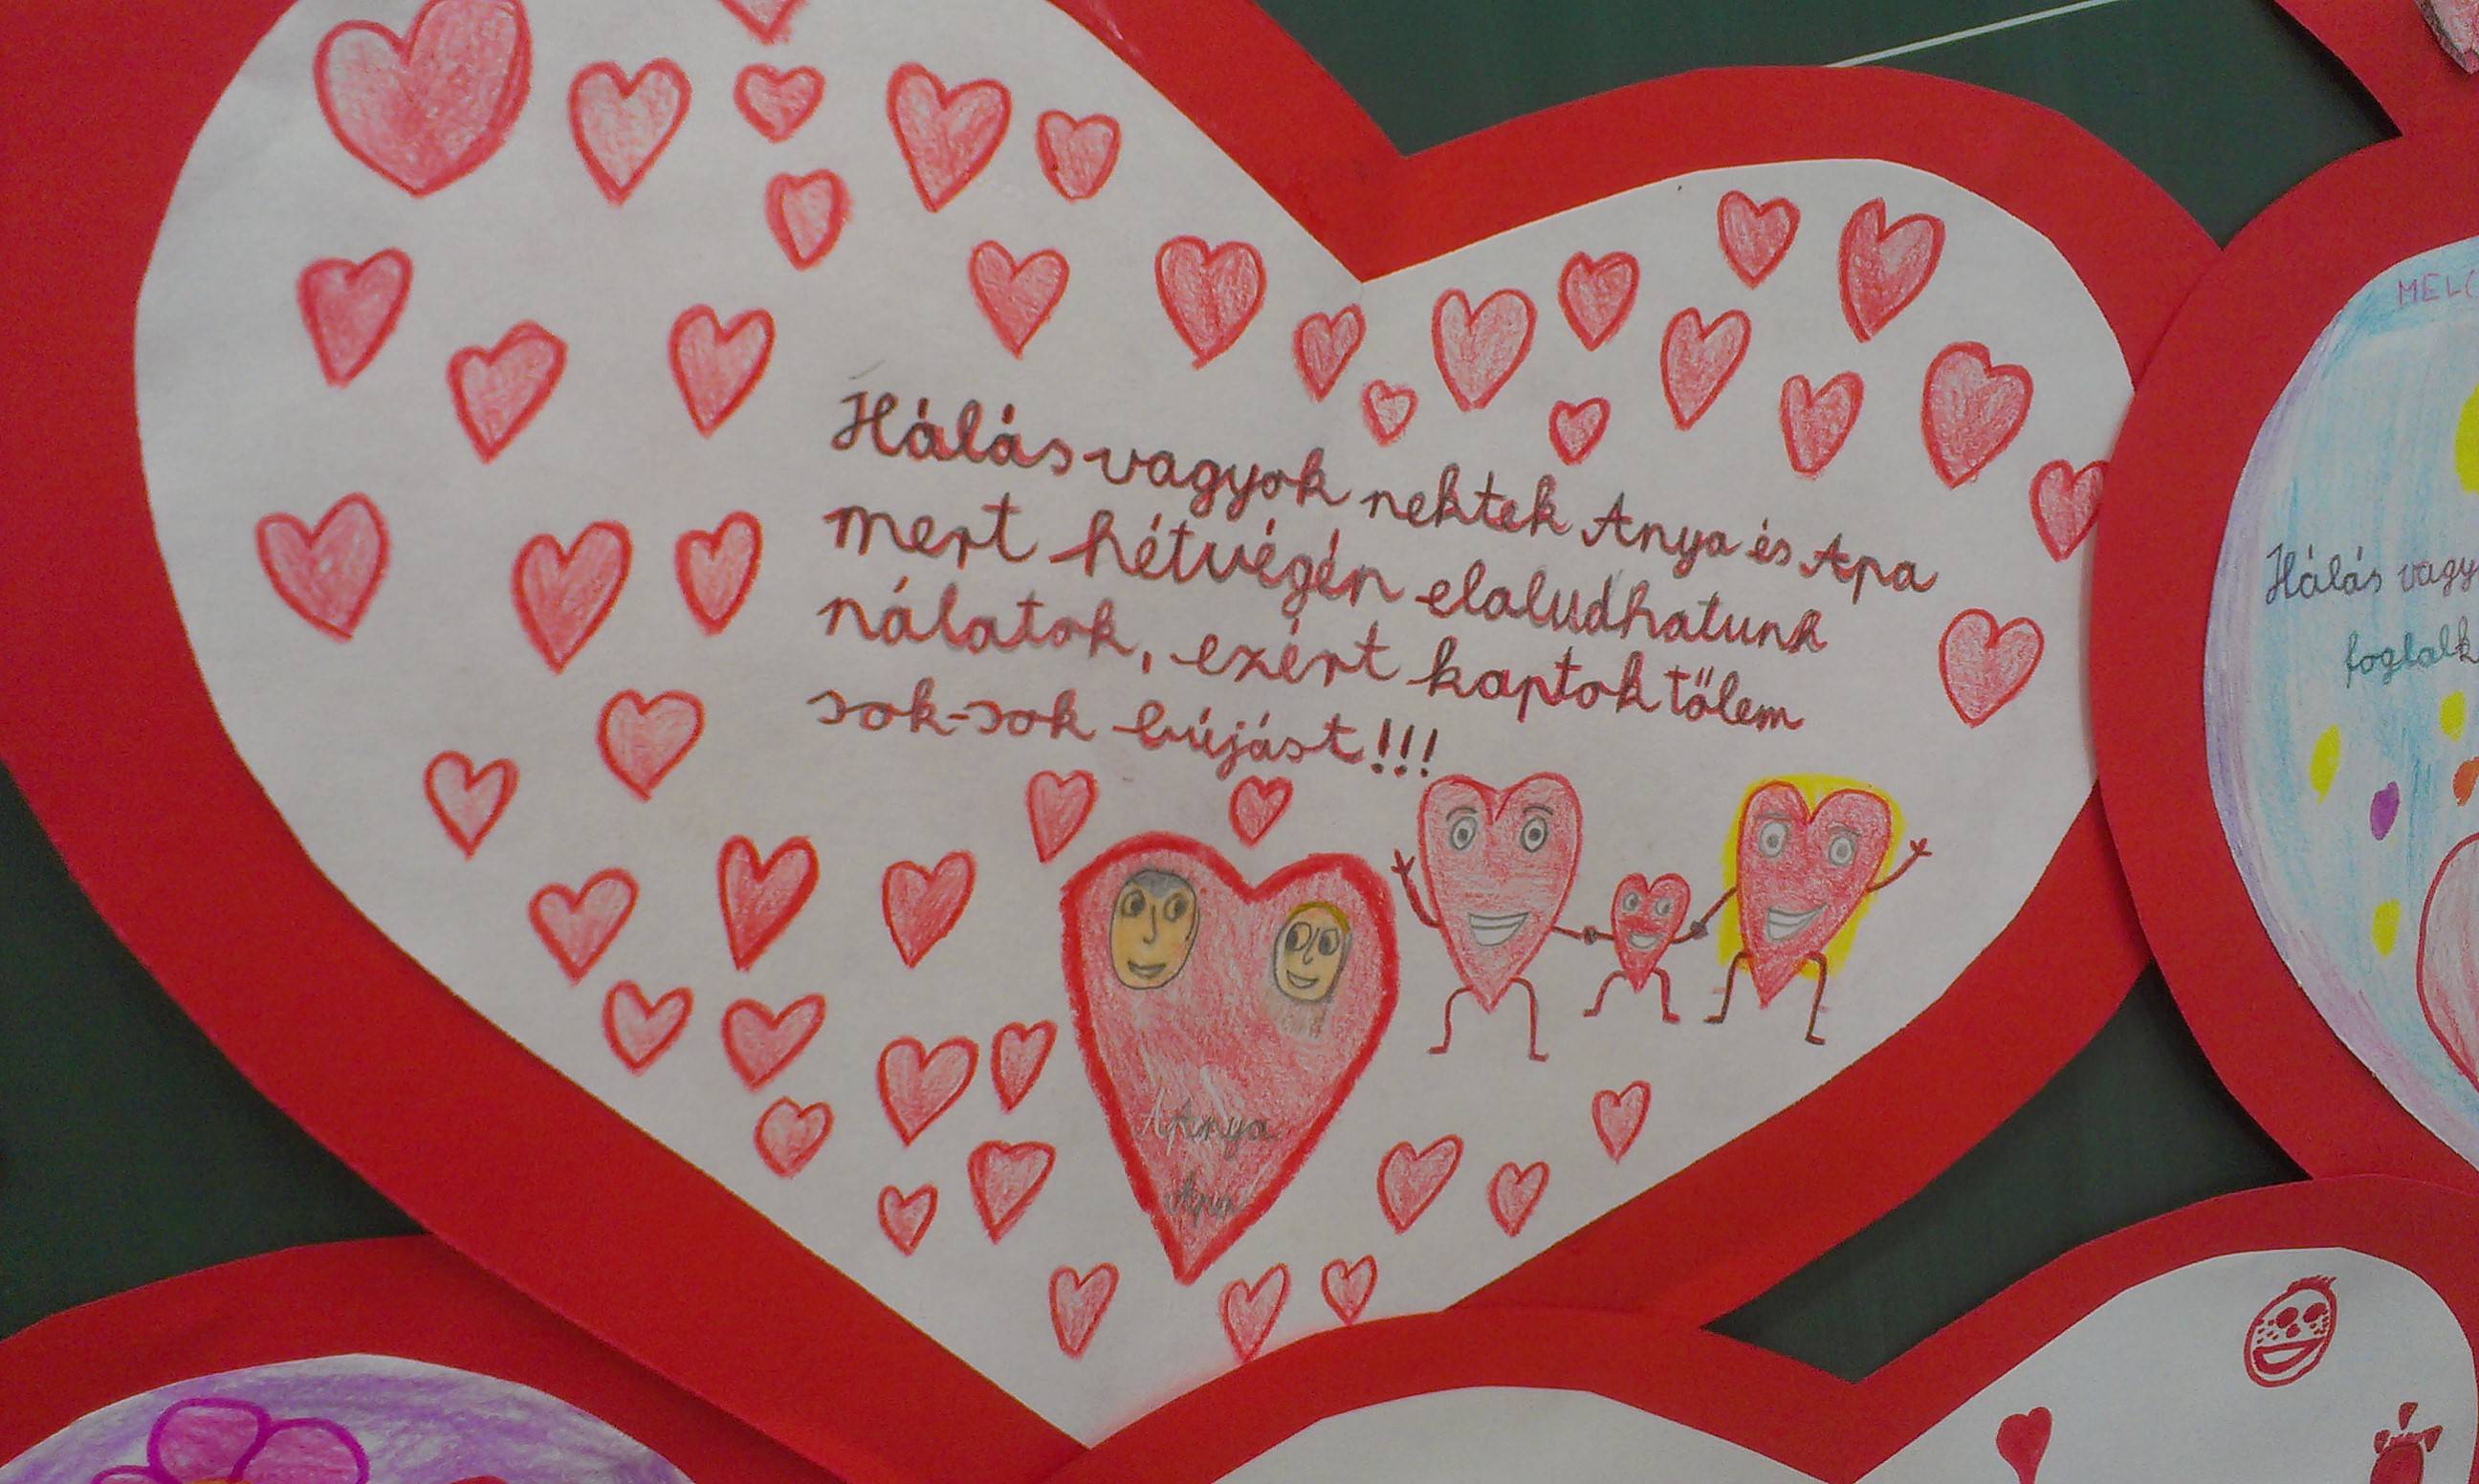 Hálás vagyok nektek Anya és Apa
mert hétvégén elaludhatunk
nálatok, ezért kaptok tőlem
sok-sok búújást!!!
Anya
Apa
Hálás vagy
foglalk